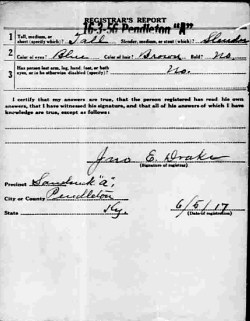 REGISTRAR'S REPORT
16-3-56 Pendleton "A"
1 Tall, medium, or short (specify which)? Tall Slender, medium, or stout (which)? Slender
2 Color of eyes? Blue Color of hair? Brown Bald? No.
3 Has person lost arm, leg, hand, foot, or both eyes, or is he otherwise disabled (specify)? No.
I certify that my answers are true, that the person registered has read his own answers, that I have witnessed his signature, and that all of his answers of which I have knowledge are true, except as follows:
Jno E. Drake
(Signature of registrar)
Precinct "a",
City or County Pendleton
State Ky.
6/5/17
(Date of registration)